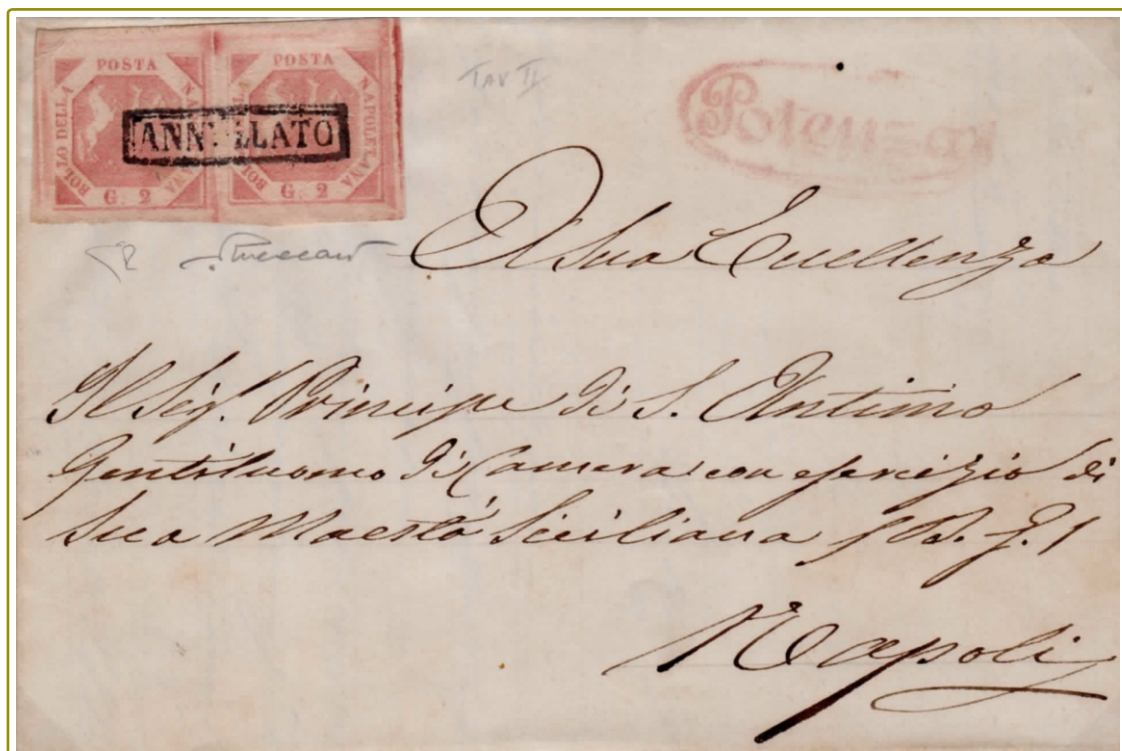 POSTA POSTA
BOLLO DELLA NAPOLETANA BOLLO DELLA NAPOLETANA
G. 2 G. 2
ANNULLATO
TAV II
Potenza
A Sua Eccellenza
Il Sig.r Principe di S. Antimo
Gentiluomo di Camera con esercizio di
Sua Maestà Siciliana
Napoli